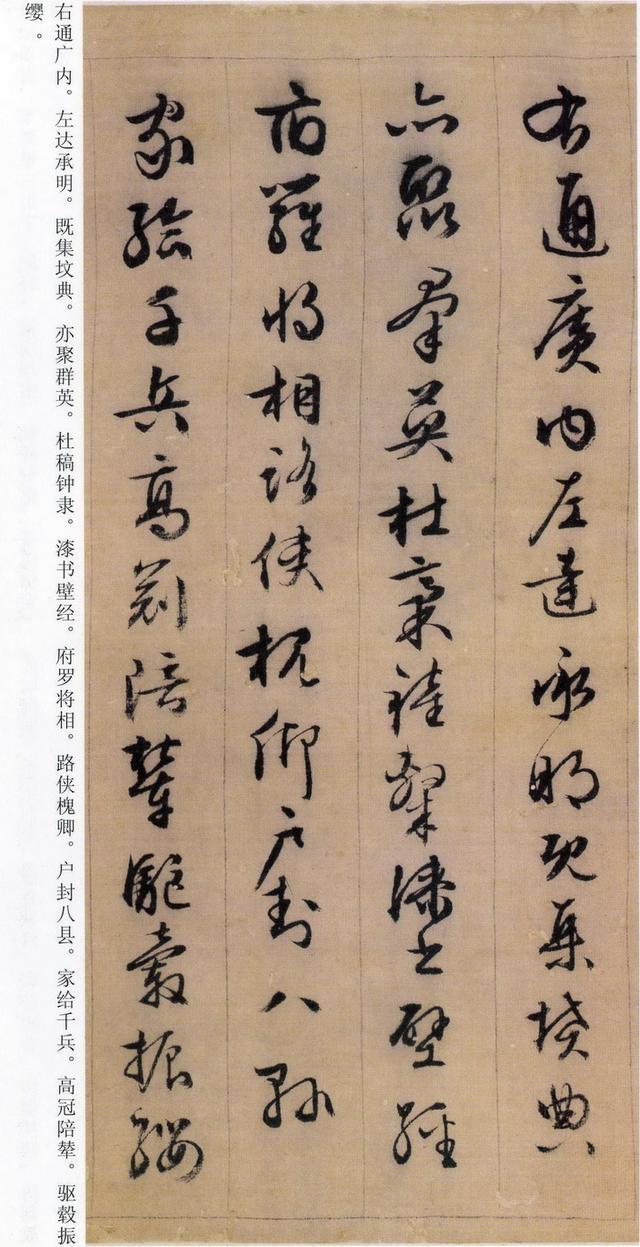 右通廣内左達承明既集墳典
亦聚羣英杜稾鍾隸漆書壁經
府羅將相路俠槐卿户封八縣
家給千兵高冠陪輦驅轂振纓
右通广内。左达承明。既集坟典。亦聚群英。杜稿钟隶。漆书壁经。府罗将相。路侠槐卿。户封八县。家给千兵。高冠陪辇。驱毂振
缨。